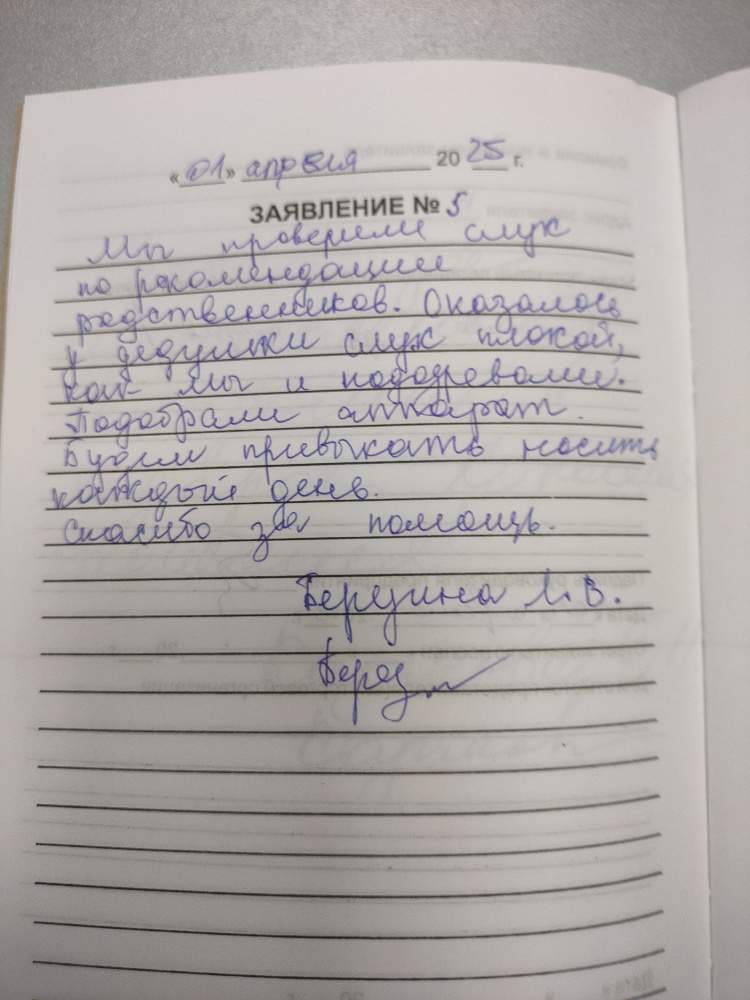 «01» апреля 2025 г.
ЗАЯВЛЕНИЕ № 5
Мы проверили слух
по рекомендации
родственников. Оказалось
у дедушки слух плохой,
как мы и подозревали.
Подобрали аппарат.
Будем привыкать носить
каждый день.
Спасибо за помощь.
Березина Л.В.
Берез